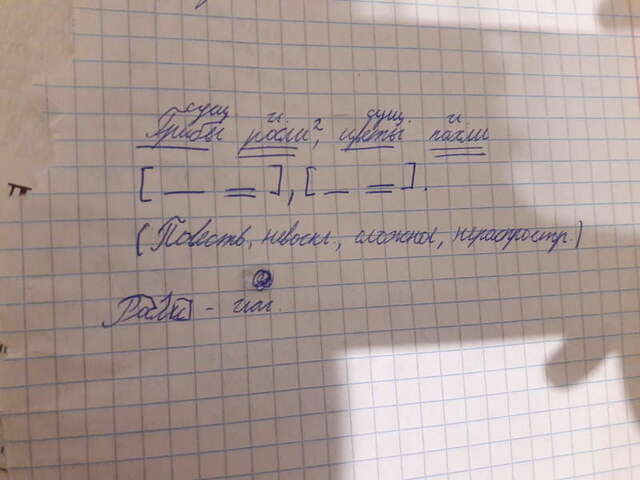 сущ. г. сущ. г.
Грибы росли², цветы пахли
[ — = ], [ — = ].
(Повеств., невоскл., сложное, нераспростр.)
Росли - глаг.